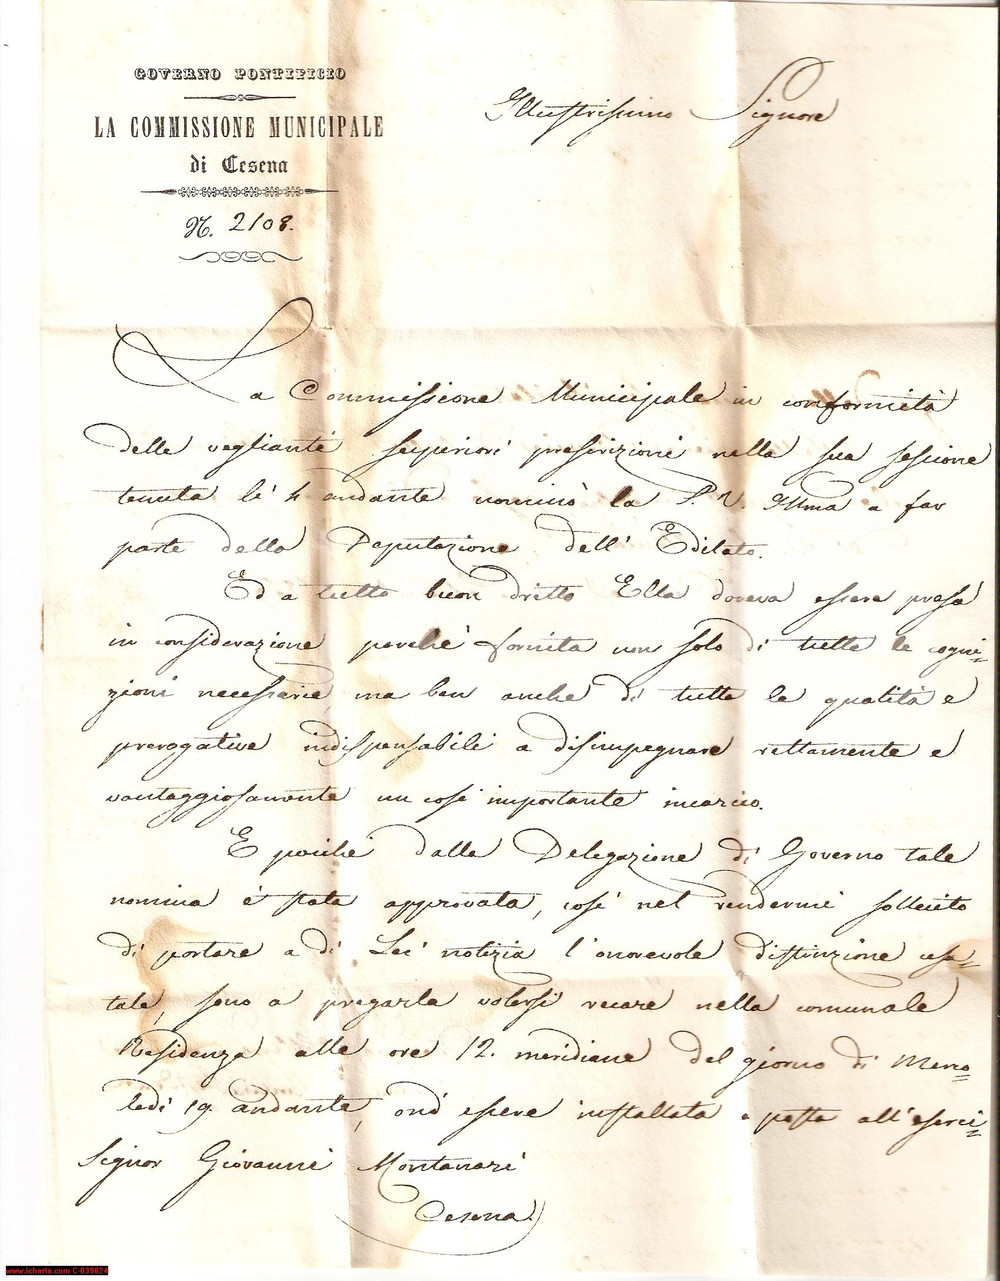 GOVERNO PONTIFICIO
LA COMMISSIONE MUNICIPALE
di Cesena
N. 2108.
Illustrissimo Signore
La Commissione Municipale in conformità
delle veglianti superiori prescrizioni nella sua sessione
tenuta li 4 andante nominò la S. V. Illma a far
parte della Deputazione dell' Edilato.
Ed a tutto buon dritto Ella doveva essere presa
in considerazione perchè fornita non solo di tutte le cogni=
zioni necessarie, ma ben anche di tutte le qualità e
prerogative indispensabili a disimpegnare rettamente e
vantaggiosamente un così importante incarico.
E poichè dalla Delegazione di Governo tale
nomina è stata approvata, così nel rendermi sollecito
di portare a di Lei notizia l'onorevole distinzione
tale, sono a pregarla volersi recare nella comunale
Residenza alle ore 12. meridiane del giorno di Merco=
ledì 19. andante, ond' essere installata e posta all'eserci=
Signor Giovanni Montanari
Cesena
www.icharta.com C-039824